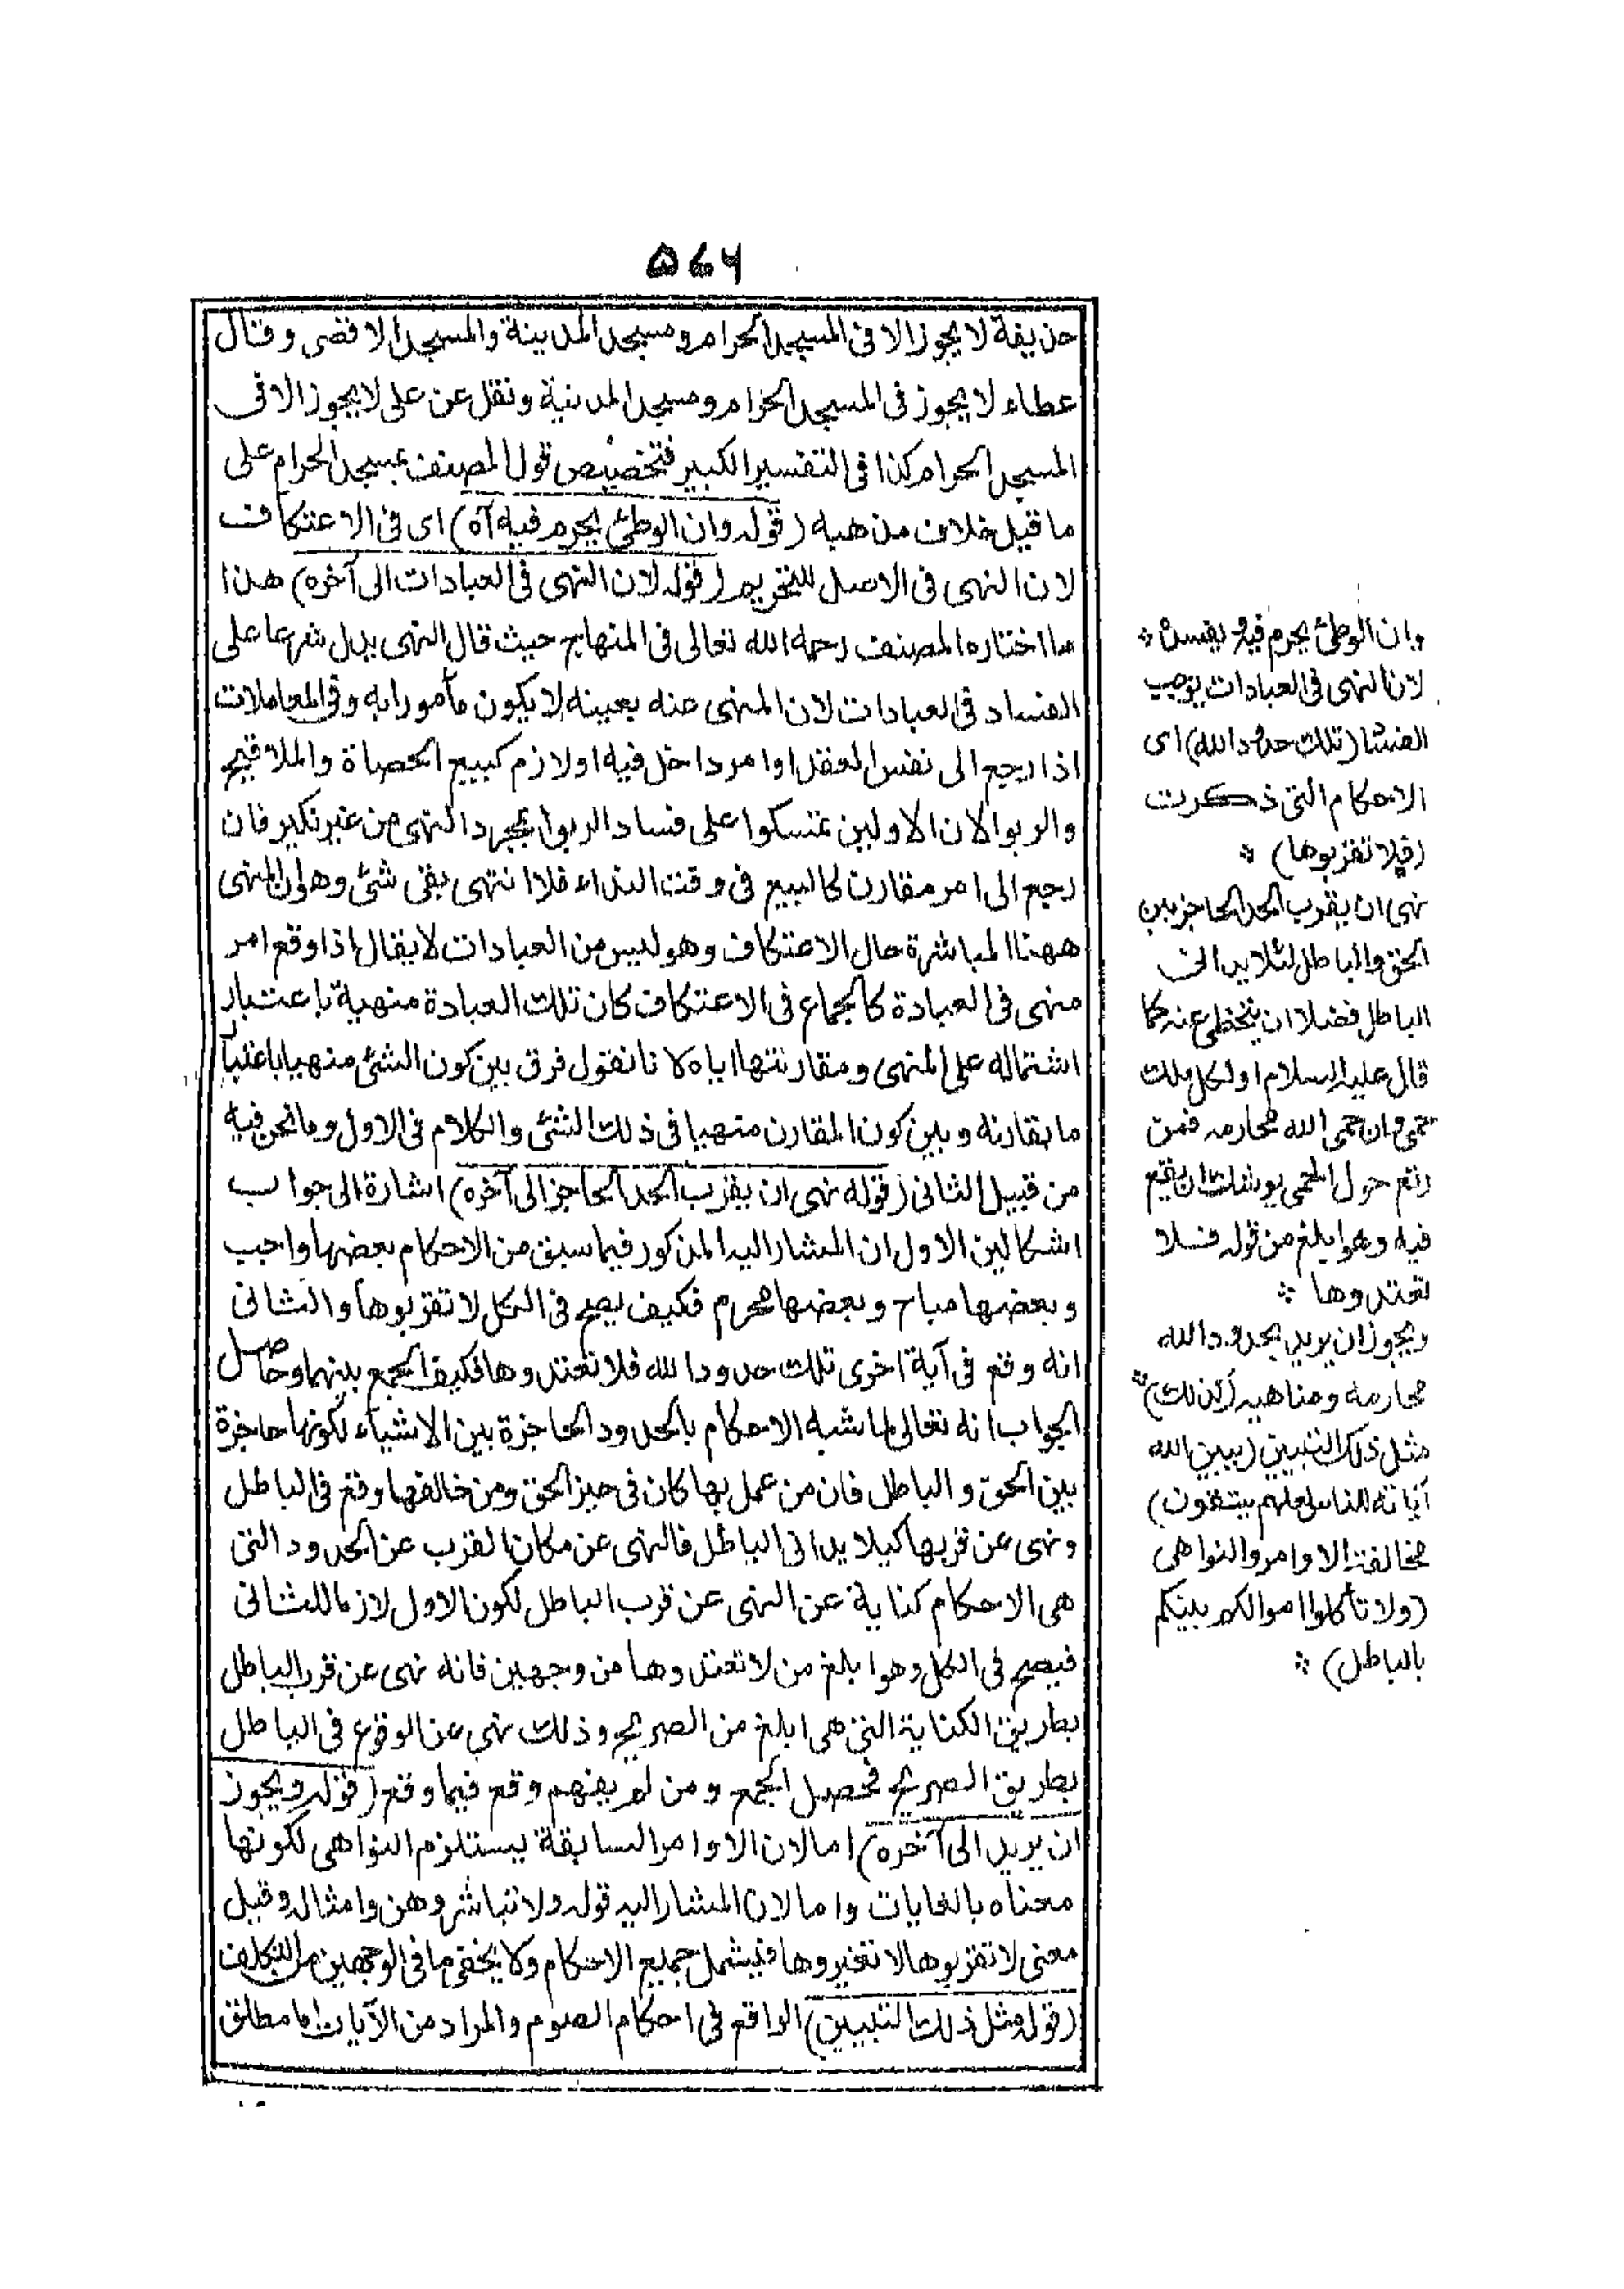 ۵۷۶
حذيفة لا يجوز الا فى المسجد الحرام ومسجد المدينة والمسجد الاقصى وقال
عطاء لا يجوز فى المسجد الحرام ومسجد المدينة ونقل عن على لا يجوز الا فى
المسجد الحرام كذا فى التفسير الكبير فتخصيص قول المصنف بمسجد الحرام على
ما قيل خلاف مذهبه (قوله وان الوطئ يحرم فيه آه) اى فى الاعتكاف
لان النهى فى الاصل للتحريم (قوله لان النهى فى العبادات الى آخره) هذا
ما اختاره المصنف رحمه الله تعالى فى المنهاج حيث قال النهى يدل شرعا على
الفساد فى العبادات لان المنهى عنه بعينه لا يكون مأمورا به وفى المعاملات
اذا رجع الى نفس العقد او امر داخل فيه او لازم كبيع الحصاة والملاقيح
والربوا لان الاولين تمسكوا على فساد الربوا بمجرد النهى من غير نكير فان
رجع الى امر مقارن كالبيع فى وقت النداء فلا انتهى بقى شئ وهو ان المنهى
ههنا المباشرة حال الاعتكاف وهو ليس من العبادات لا يقال اذا وقع امر
منهى فى العبادة كالجماع فى الاعتكاف كان تلك العبادة منهية باعتبار
اشتماله على المنهى ومقارنتها اياه لانا نقول فرق بين كون الشئ منهيا باعتبار
ما يقارنه وبين كون المقارن منهيا فى ذلك الشئ والكلام فى الاول وما نحن فيه
من قبيل الثانى (قوله نهى ان يقرب الحد الحاجز الى آخره) اشارة الى جواب
اشكالين الاول ان المشار اليه المذكور فيما سبق من الاحكام بعضها واجب
وبعضها مباح وبعضها محرم فكيف يصح فى الكل لا تقربوها والثانى
انه وقع فى آية اخرى تلك حدود الله فلا تعتدوها فكيف الجمع بينهما وحاصل
الجواب انه تعالى لما شبه الاحكام بالحدود الحاجزة بين الاشياء لكونها حاجزة
بين الحق والباطل فان من عمل بها كان فى حيز الحق ومن خالفها وقع فى الباطل
ونهى عن قربها كيلا يدانى الباطل فالنهى عن مكان القرب عن الحدود التى
هى الاحكام كناية عن النهى عن قرب الباطل لكون الاول لازما للثانى
فيصح فى الكل وهو ابلغ من لا تعتدوها من وجهين فانه نهى عن قرب الباطل
بطريق الكناية التى هى ابلغ من الصريح وذلك نهى عن الوقوع فى الباطل
بطريق الصريح فحصل الجمع ومن لم يفهم وقع فيما وقع (قوله ويجوز
ان يريد الى آخره) اما لان الاوامر السابقة يستلزم النواهى لكونها
مغياه بالغايات واما لان المشار اليه قوله ولا تباشروهن وامثاله وقيل
معنى لا تقربوها لا تغيروها فيشمل جميع الاحكام ولا يخفى ما فى الوجهين من التكلف
(قوله مثل ذلك التبيين) الواقع فى احكام الصوم والمراد من الآيات اما مطلق
وان الوطئ يحرم فيه ويفسده
لان النهى فى العبادات يوجب
الفساد (تلك حدود الله) اى
الاحكام التى ذكرت
(فلا تقربوها)
نهى ان يقرب الحد الحاجز بين
الحق والباطل لئلا يدانى
الباطل فضلا ان يتخطى عنه كما
قال عليه السلام ان لكل ملك
حمى وان حمى الله محارمه فمن
رتع حول الحمى يوشك ان يقع
فيه وهو ابلغ من قوله فلا
تعتدوها
ويجوز ان يريد بحدود الله
محارمه ومناهيه (كذلك)
مثل ذلك التبيين (يبين الله
آياته للناس لعلهم يتقون)
مخالفة الاوامر والنواهى
(ولا تأكلوا اموالكم بينكم
بالباطل)